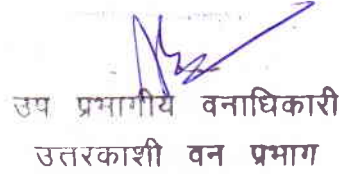 उप प्रभागीय वनाधिकारी
उतरकाशी वन प्रभाग